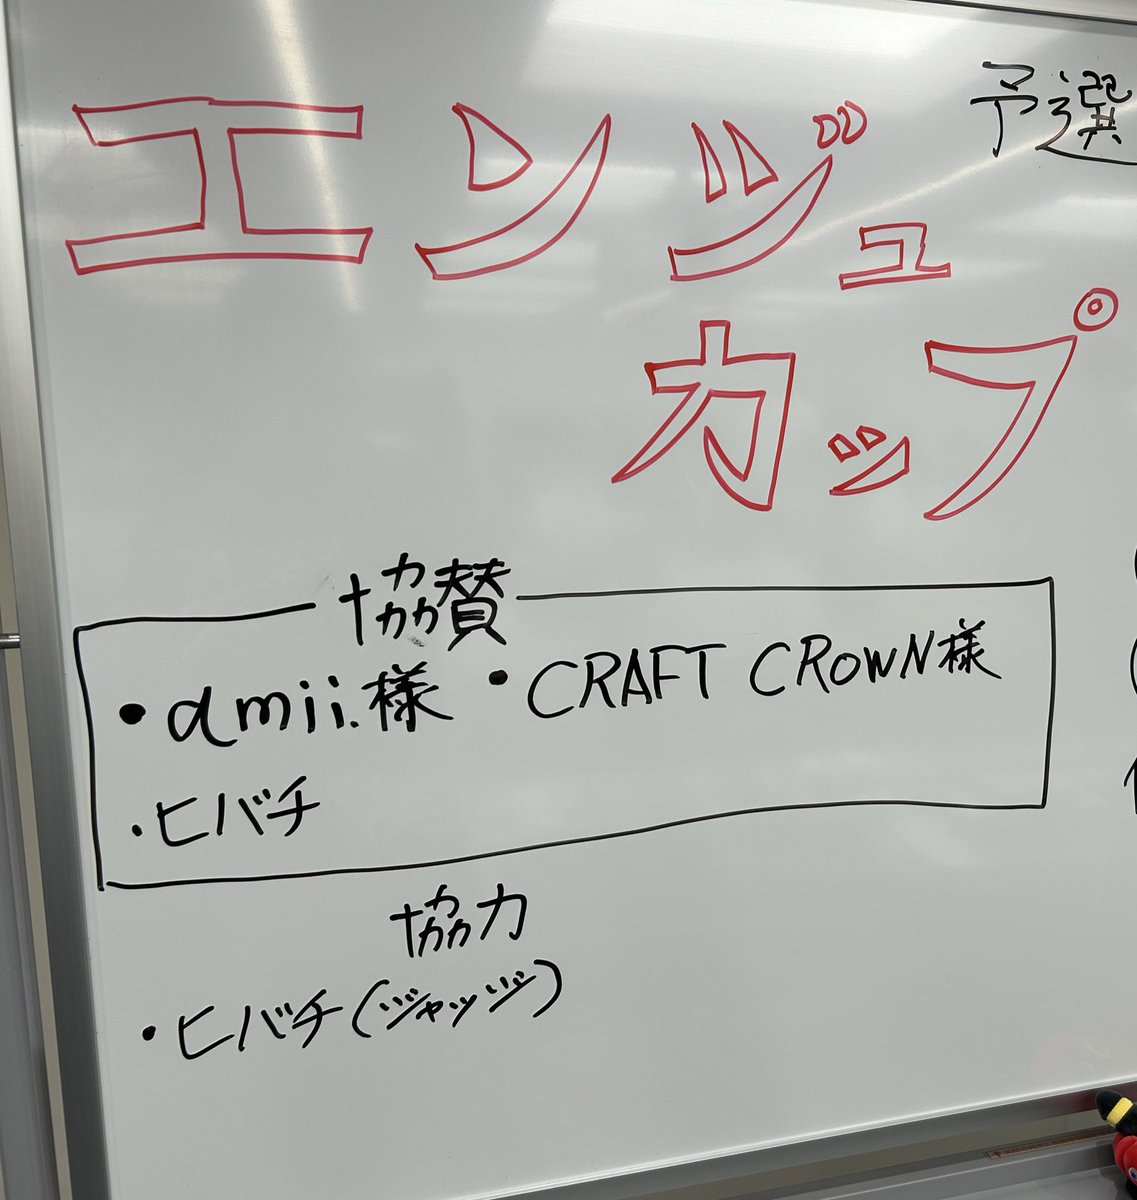 エンジュ
カップ
予選
協賛
・amii.様 ・CRAFT CROWN様
・ヒバチ
協力
・ヒバチ(ジャッジ)